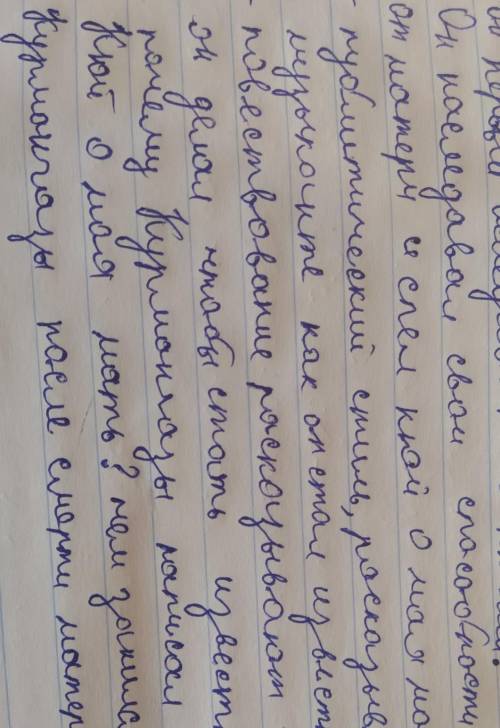 первый
Он наследовал свои способности
от матери и спел кюй о мая ма
- публитический стиль, расказыв
музыканте как он стал извест
- повествование расказывают
он делал чтобы стать извест
почему Курмангазы написал
Кюй о мая мать? чем занима
Курмангазы после смерти матер